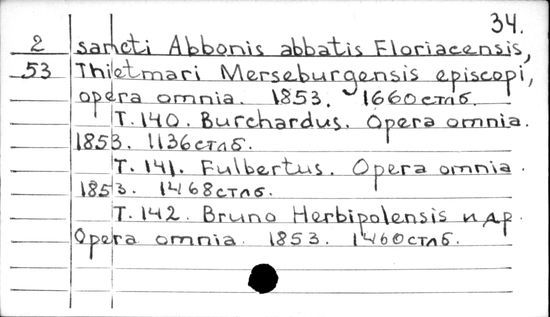 34.
2 sancti Abbonis abbatis Floriacensis,
53 Thietmari Merseburgensis episcopi,
opera omnia. 1853. 1660стлб.
Т.140. Burchardus. Opera omnia.
1853. 1136стлб.
Т.141. Fulbertus. Opera omnia.
1853. 1468стлб.
Т.142. Bruno Herbipolensis и др.
Opera omnia. 1853. 1460стлб.